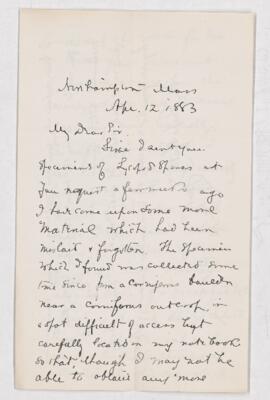 Northampton Mass
Apr. 12 1883
My Dear Sir.
Since I sent you
specimens of
your request a few weeks ago
I have come upon some more
material which had been
mislaid & forgotten. The specimen
which I found was collected some
time since from a Corniferous boulder
near a corniferous outcrop, in
a spot difficult of access but
carefully located in my note book
so that though I may not be
able to obtain any more